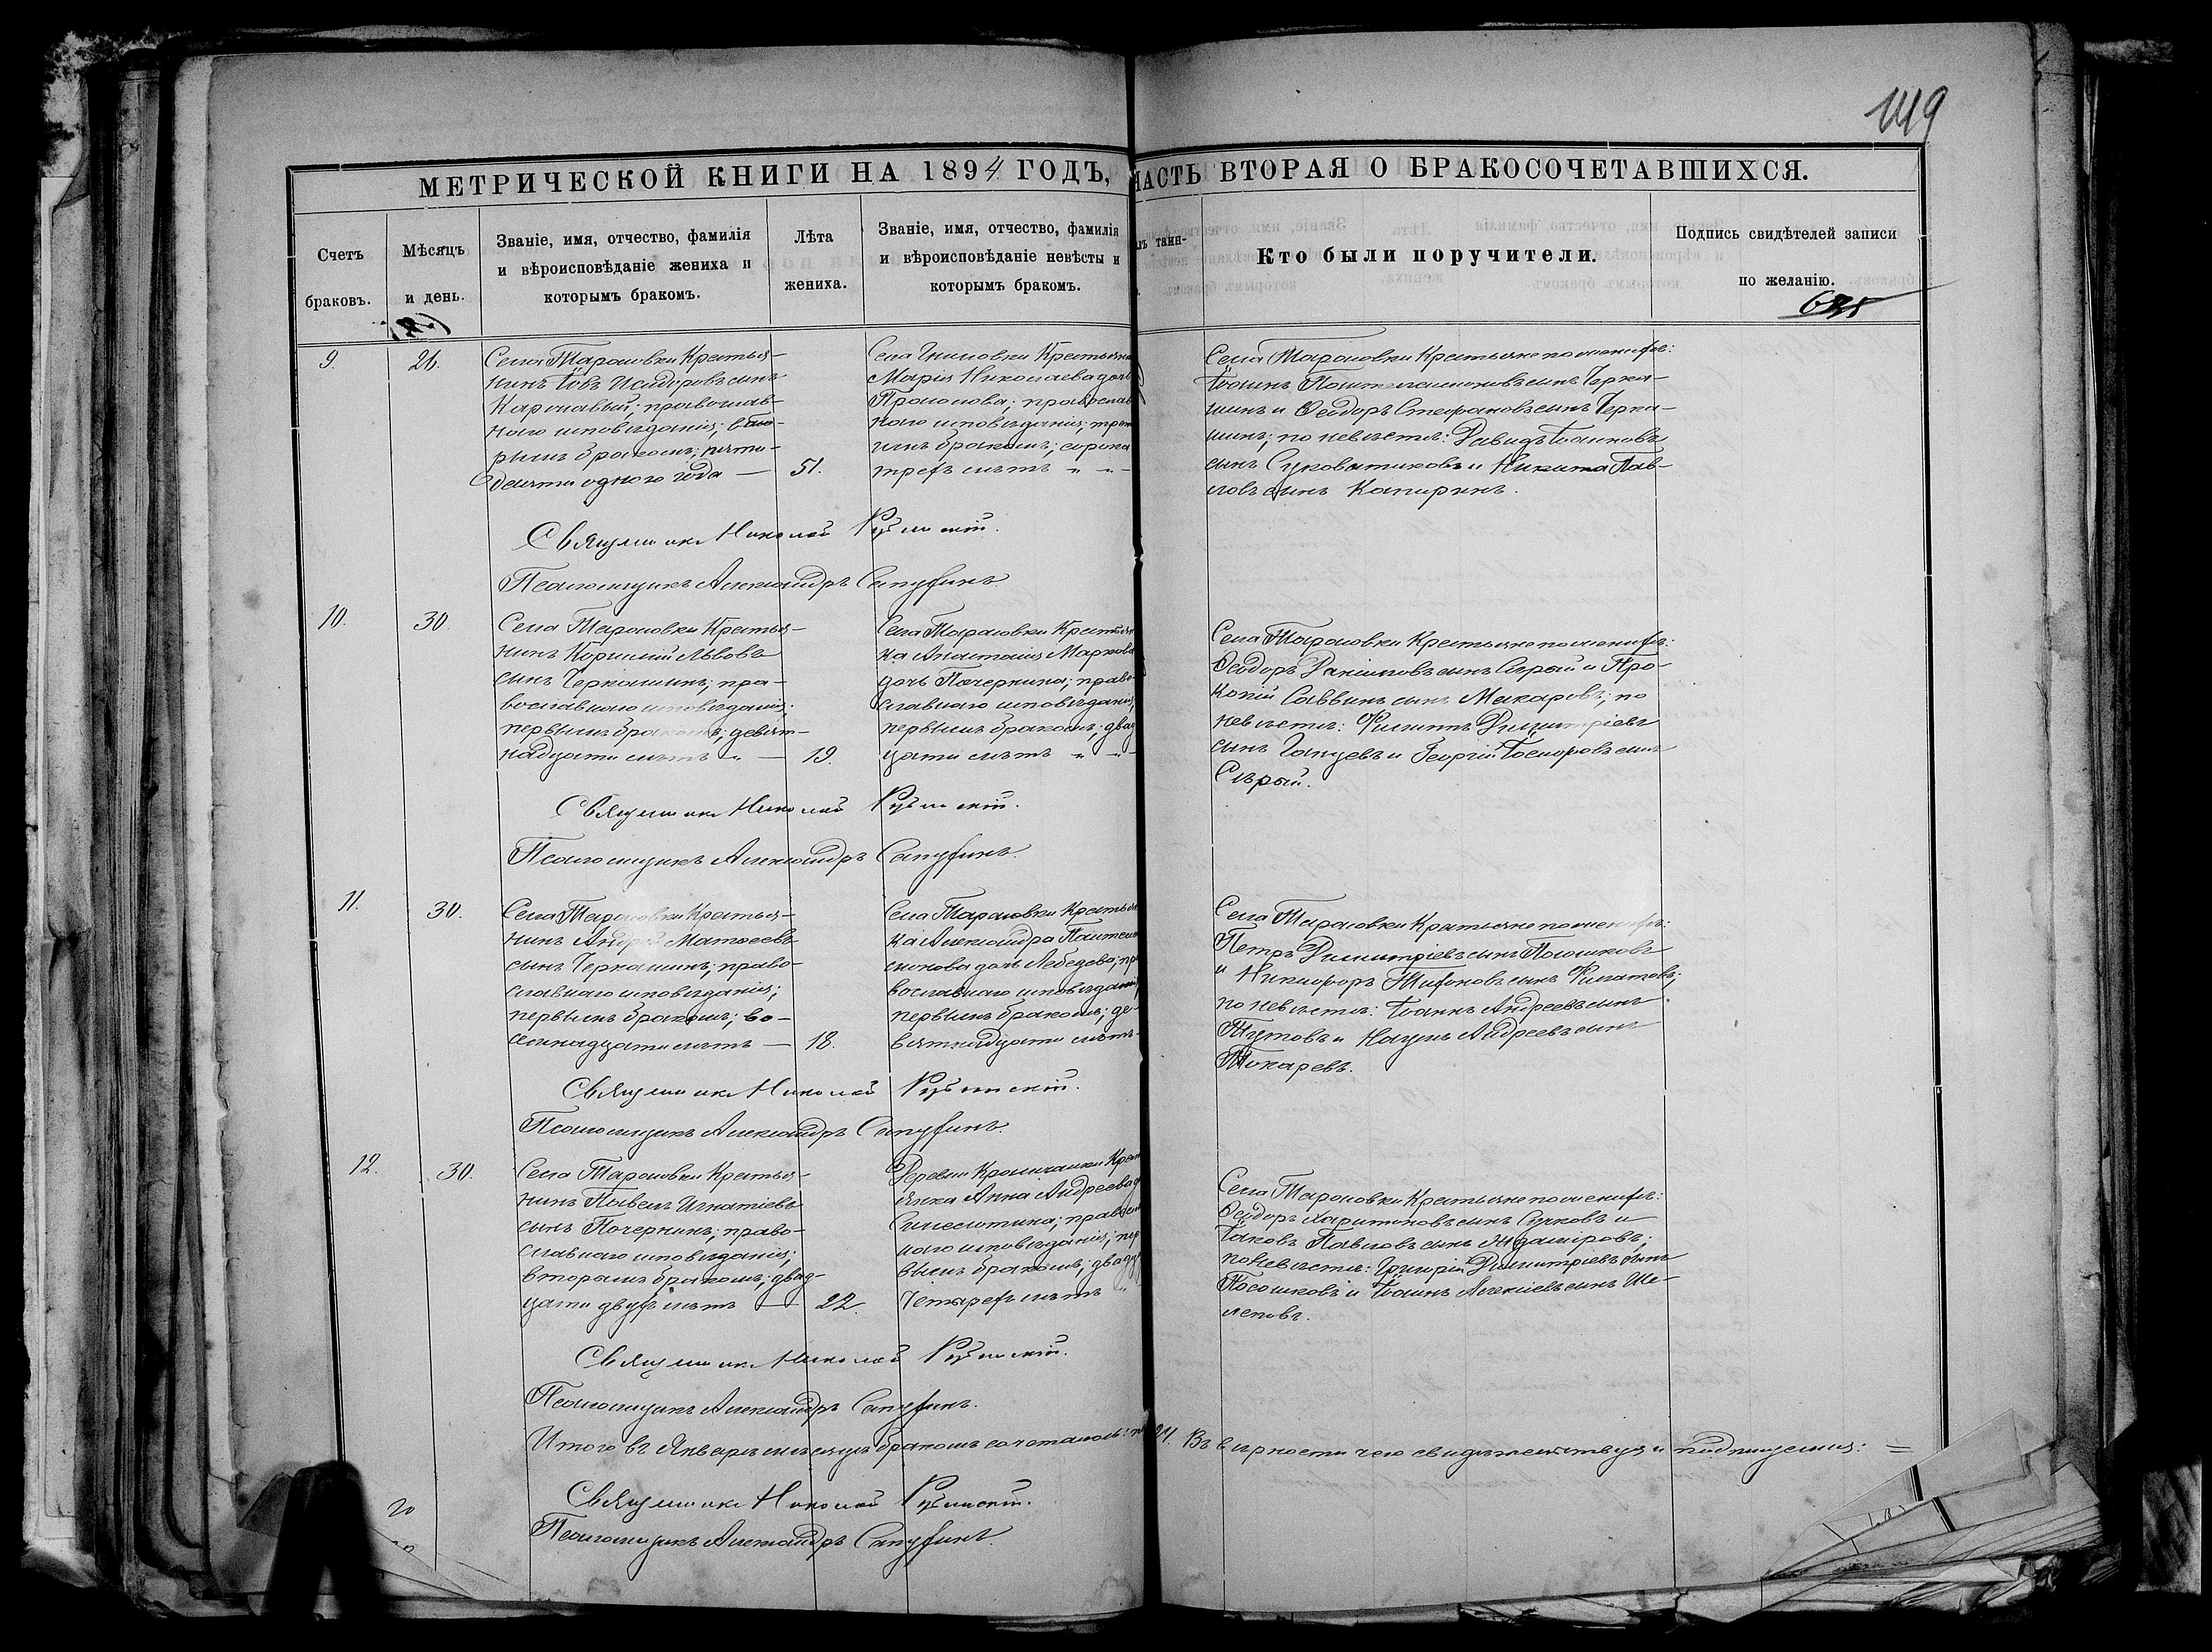 149
МЕТРИЧЕСКОЙ КНИГИ НА 1894 ГОДЪ, ЧАСТЬ ВТОРАЯ О БРАКОСОЧЕТАВШИХСЯ.
Счетъ браковъ.
Мѣсяцъ и день.
Званіе, имя, отчество, фамилія
и вѣроисповѣданіе жениха и
которымъ бракомъ.
Лѣта
жениха.
Званіе, имя, отчество, фамилія
и вѣроисповѣданіе невѣсты и
которымъ бракомъ.
таин-
Кто были поручители.
Подпись свидѣтелей записи
по желанію.
9.
26.
Села Тарасовки Крестья-
нинъ Іовъ Исидоровъ сынъ
православ-
наго исповѣданія; вто-
рымъ бракомъ; пяти-
десяти одного года —
51.
Села Крестьянка
Марія Николаева дочь
православ
наго исповѣданія; треть
имъ бракомъ; сорока
трехъ лѣтъ " "
Села Тарасовки Крестьяне по женихѣ:
Іоаннъ Пантелеимоновъ сынъ Черка-
шинъ и Ѳеодоръ Стефановъ сынъ Черка-
шинъ; по невѣстѣ: Давидъ Іоанновъ
сынъ Суковатиковъ и Никита Пав-
ловъ сынъ Капиринъ.
Священникъ Николай
Псаломщикъ Александръ
10.
30.
Села Тарасовки Крестья-
нинъ Корнилій Львовъ
сынъ Черкашинъ; пра-
вославнаго исповѣданія;
первымъ бракомъ; девят-
надцати лѣтъ " —
19.
Села Тарасовки Крестьян
ка Анастасія Маркова
дочь Почеркина; право
славнаго исповѣданія;
первымъ бракомъ; двад
цати лѣтъ " "
Села Тарасовки Крестьяне по женихѣ:
Ѳеодоръ Даніиловъ сынъ Сѣрый и Про-
копій Саввинъ сынъ Макаровъ; по
невѣстѣ: Филиппъ Димитріевъ
сынъ и Георгій сынъ
Сѣрый.
Священникъ Николай
Псаломщикъ Александръ
11.
30.
Села Тарасовки Крестья-
нинъ Андрей Матѳеевъ
сынъ Черкашинъ; право-
славнаго исповѣданія;
первымъ бракомъ; во-
семнадцати лѣтъ —
18.
Села Тарасовки Крестьян
ка Александра Пантелеи
монова дочь Лебедева; пра
вославнаго исповѣданія;
первымъ бракомъ; де-
вятнадцати лѣтъ
Села Тарасовки Крестьяне по женихѣ:
Петръ Димитріевъ сынъ Посошковъ
и Никифоръ Тихоновъ сынъ Филатовъ;
по невѣстѣ: Іоаннъ Андреевъ сынъ
и Наумъ Андреевъ сынъ
Токаревъ.
Священникъ Николай
Псаломщикъ Александръ
12.
30.
Села Тарасовки Крестья-
нинъ Павелъ Игнатіевъ
сынъ Почеркинъ; право-
славнаго исповѣданія;
вторымъ бракомъ; двад-
цати двухъ лѣтъ —
22.
Деревни Крест
янка Анна Андреева д
православ
наго исповѣданія; пер
вымъ бракомъ; двадца
четырехъ лѣтъ "
Села Тарасовки Крестьяне по женихѣ:
Ѳеодоръ Харитоновъ сынъ Сучковъ и
Іаковъ Павловъ сынъ
по невѣстѣ: Григорій Димитріевъ сынъ
Посошковъ и Іоаннъ Алексіевъ сынъ Ше-
леповъ.
Священникъ Николай
Псаломщикъ Александръ
Итого въ Январѣ мѣсяцѣ бракомъ сочетались: 24. Въ вѣрности чего свидѣтельствуя и подпишемся: =
Священникъ Николай
Псаломщикъ Александръ
20